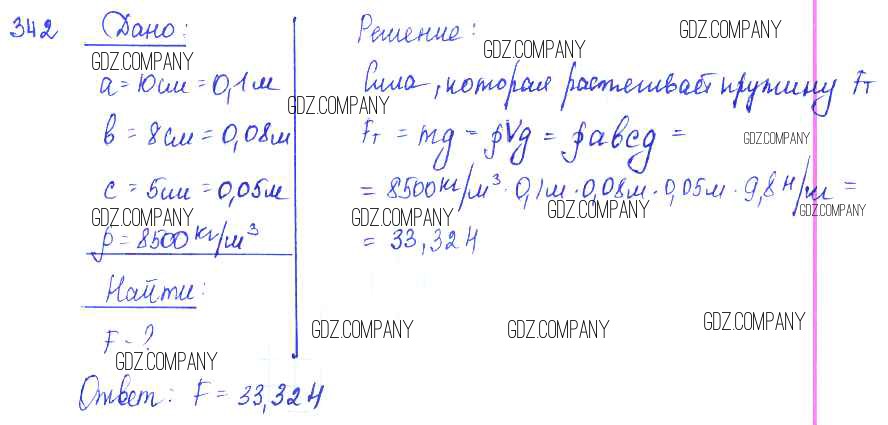 342 Дано:
GDZ.COMPANY
a = 10см = 0,1м
в = 8см = 0,08м
с = 5см = 0,05м
GDZ.COMPANY
ρ = 8500кг/м³
Найти:
F - ?
GDZ.COMPANY
Ответ: F = 33,32Н
Решение:
GDZ.COMPANY
GDZ.COMPANY
Сила, которая растягивает пружину Fт
GDZ.COMPANY
Fт = mg = ρVg = ρавсg =
GDZ.COMPANY
= 8500кг/м³ · 0,1м · 0,08м · 0,05м · 9,8Н/м =
GDZ.COMPANY GDZ.COMPANY GDZ.COMPANY
= 33,32Н
GDZ.COMPANY GDZ.COMPANY GDZ.COMPANY